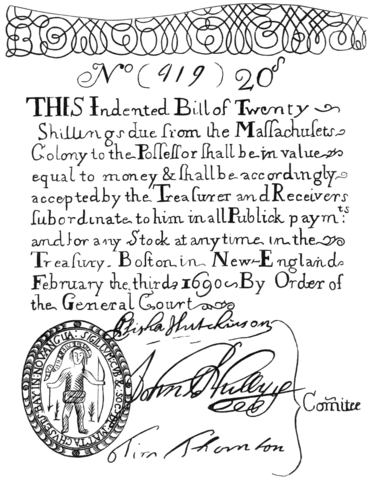 No (919) 20s
THIS Indented Bill of Twenty
Shillings due from the Massachusets
Colony to the Possessor shall be in value
equal to money & shall be accordingly
accepted by the Treasurer and Receivers
subordinate to him in all Publick paymts:
and for any Stock at any time in the
Treasury. Boston in New-England
February the third 1690 By Order of
the General Court
Elisha Hutchinson
John
Comitee
Tim Thornton